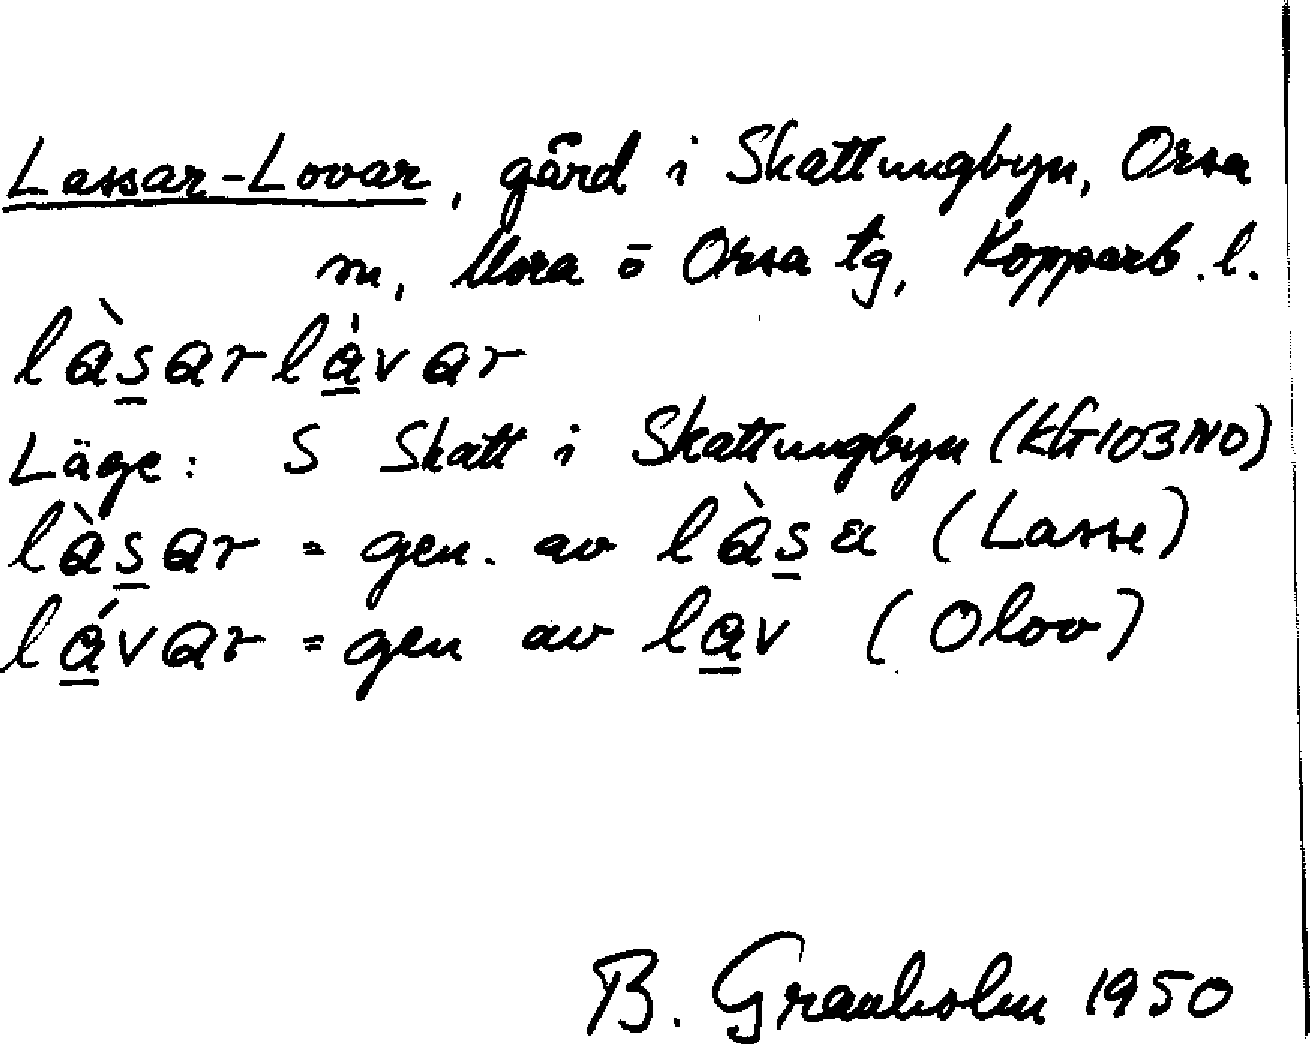 Lassar-Lovar, gård i Skattungbyn, Orsa
sn, Mora o Orsa tg, Kopparb. l.
làs̲arlà̲var
Läge: S Skatt i Skattungbyn (KG103NO)
làs̲ar = gen. av làs̲a (Lasse)
lá̲var = gen av la̲v (Olov)
B. Granholm 1950